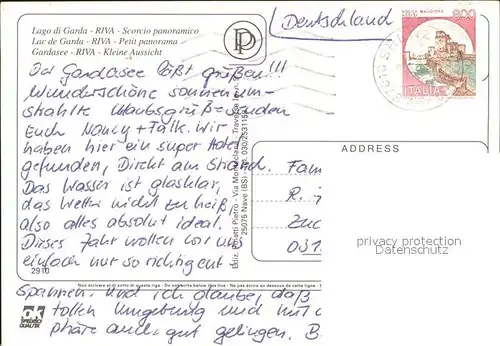 Lago di Garda - RIVA - Scorcio panoramico
Lac de Garda - RIVA - Petit panorama
Gardasee - RIVA - Kleine Aussicht
(Deutschland)
800
ITALIA
Der Gardasee läßt grüßen!!!
Wunderschöne sonnenum-
strahlte Urlaubsgrüße senden
Euch Nancy + Falk. Wir
haben hier ein super Hotel
gefunden, Direkt am Strand.
Das Wasser ist glasklar,
das Wetter nicht zu heiß,
also alles absolut ideal.
Dieses Jahr wollen wir uns
einfach nur so richtig ent
spannen. Und ich glaube, daß
tollen Umgebung und mit d
phäre auch gut gelingen. B
ADDRESS
Fam
R. J
Zuc
031
privacy protection
Datenschutz
25075 Nave (BS) - Tel. 030/2531155
2910
Non scrivere al di sotto di questa riga - Ne pas écrire au dessous de cette ligne